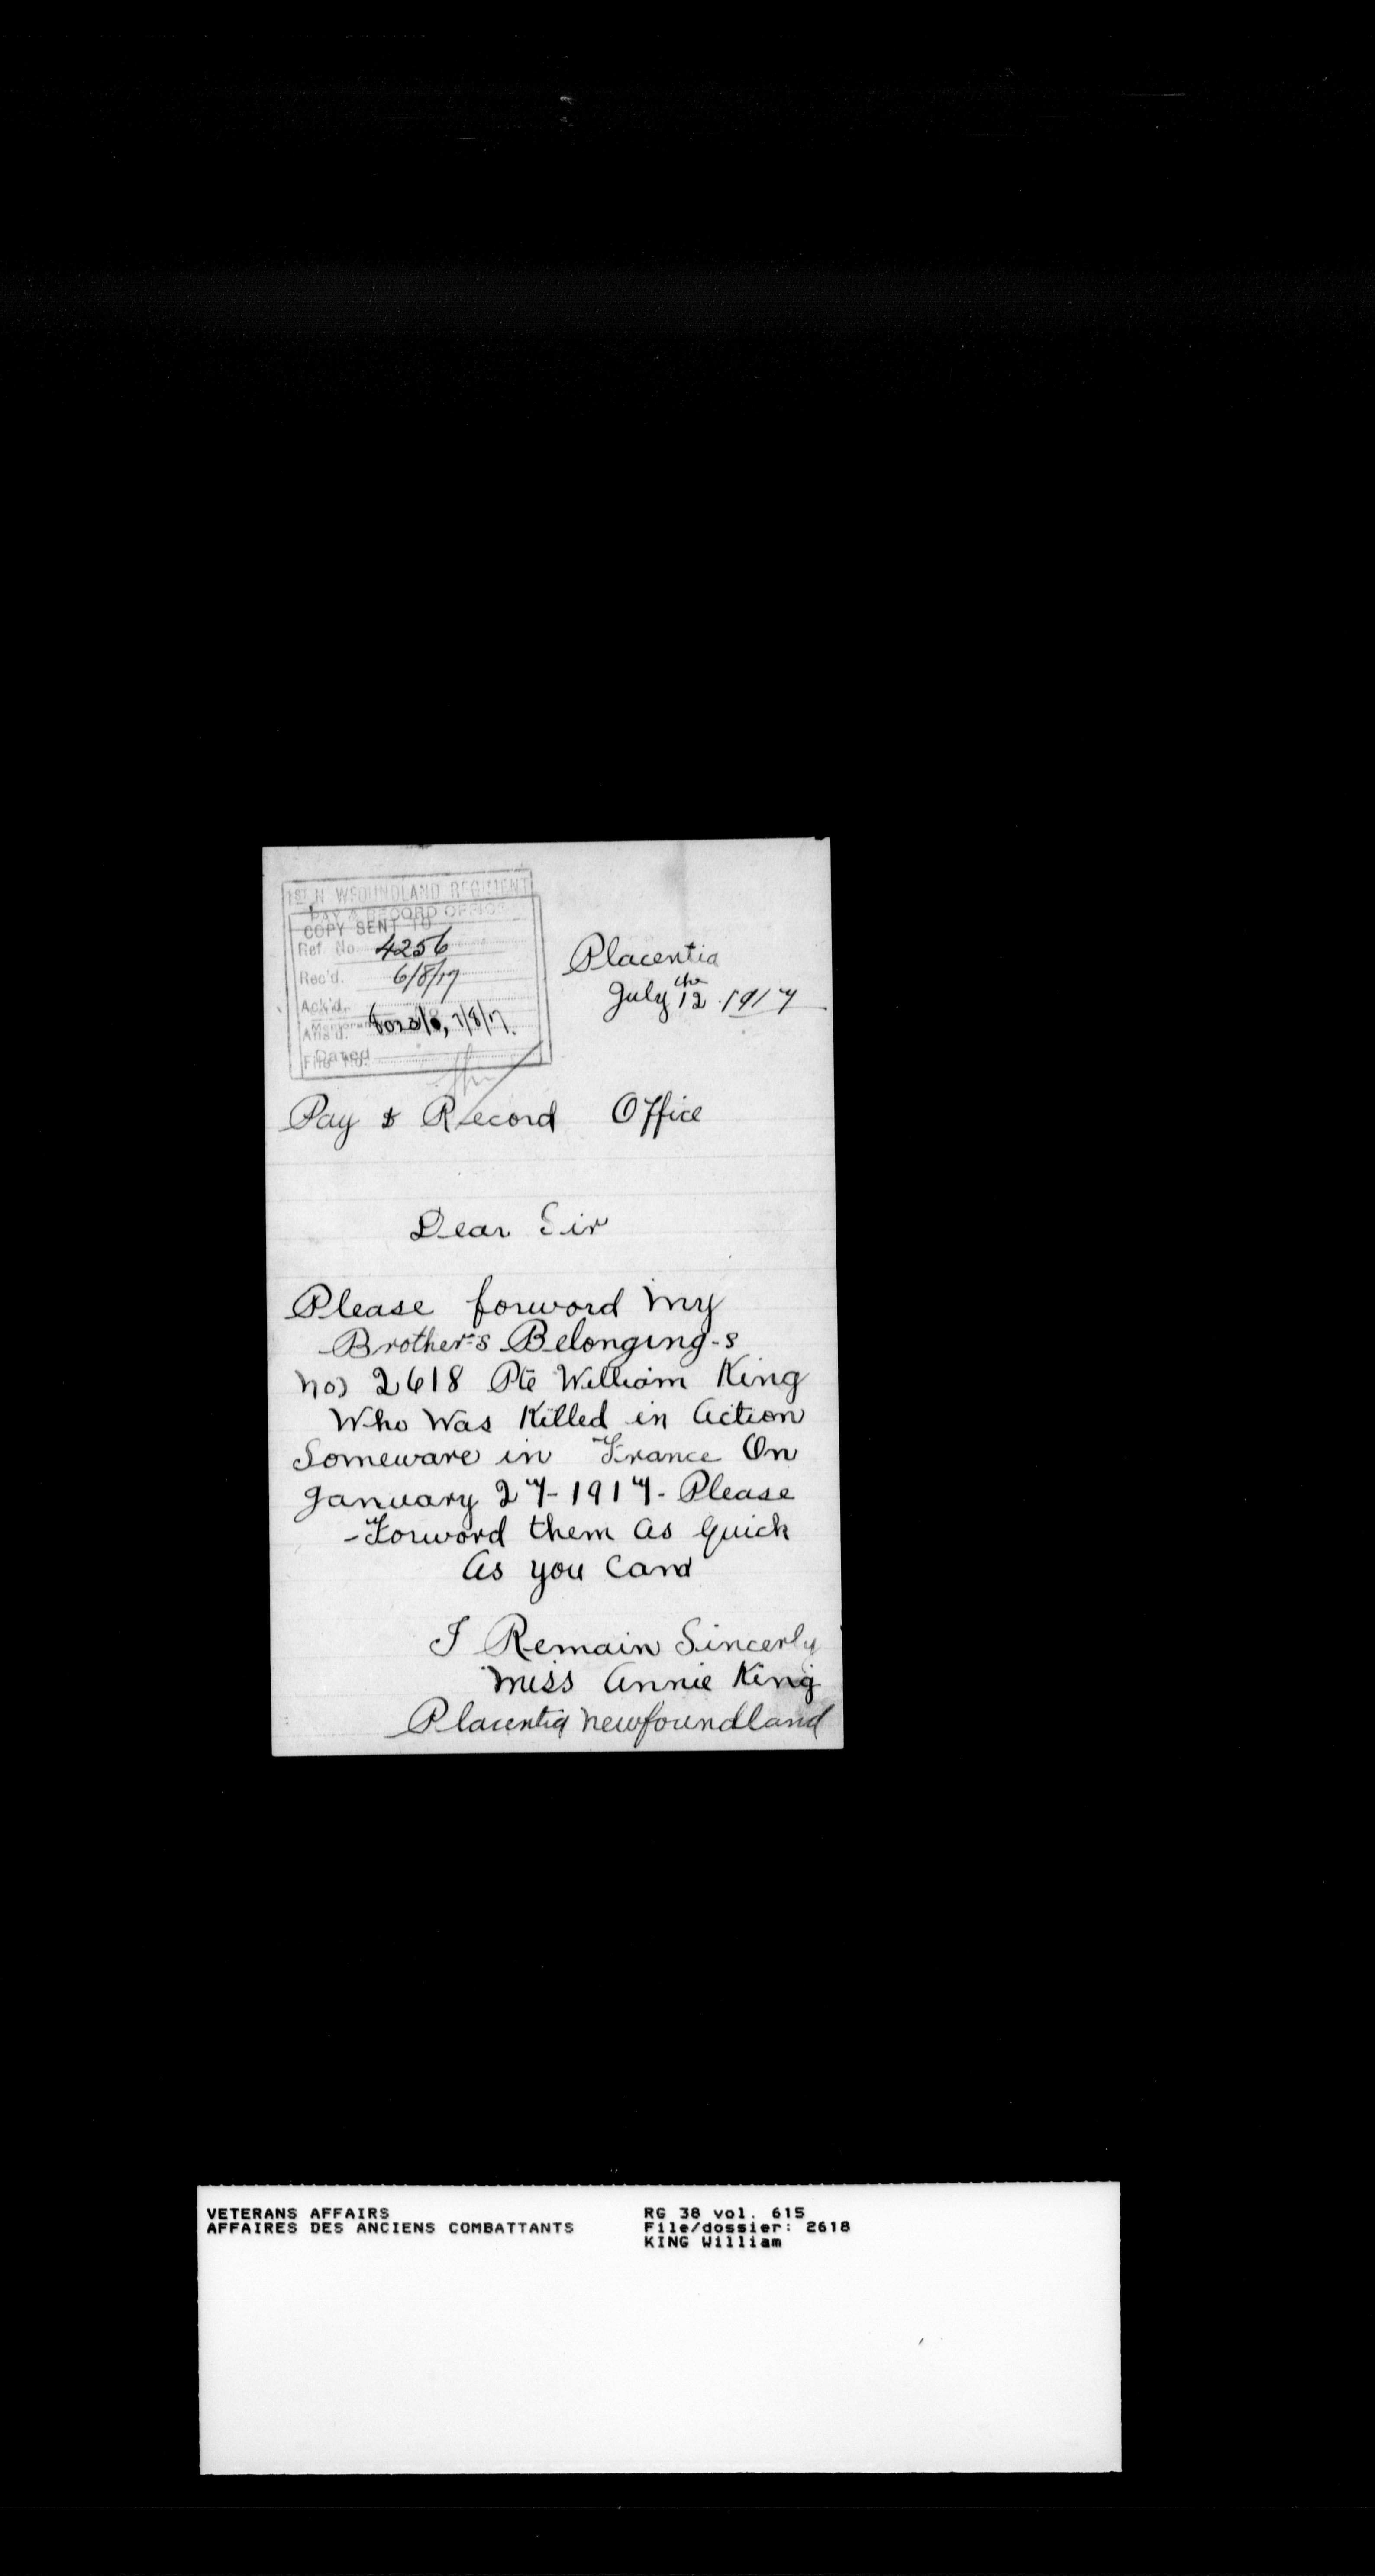 1ST NEWFOUNDLAND REGIMENT
PAY & RECORD OFFICE
COPY SENT TO
Ref. No. 4256
Rec'd. 6/8/17
Ack'd.
Ans'd. 7/8/17.
Dated
File No.
Placentia
July 12 the 1917
Pay & Record Office
Dear Sir
Please forword my
Brother's Belonging-s
no) 2618 Pte William King
Who Was Killed in action
Someware in France On
January 27-1917- Please
-Forword them as quick
as you Cand
I Remain Sincerly
miss annie King
Placentia newfoundland
VETERANS AFFAIRS
AFFAIRES DES ANCIENS COMBATTANTS
RG 38 vol. 615
File/dossier: 2618
KING William